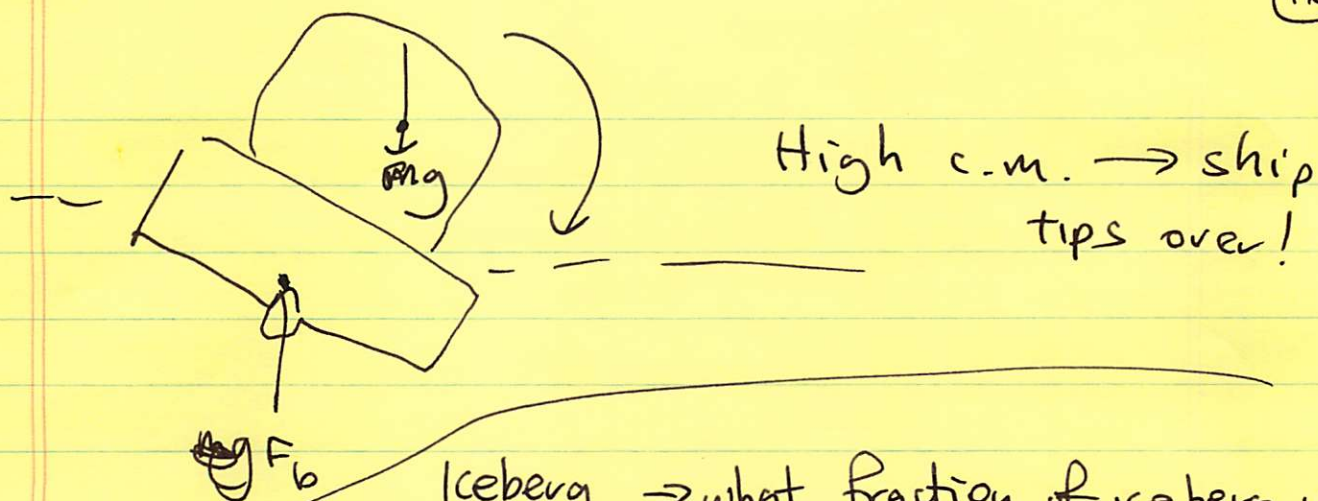 mg
High c.m. → ship
tips over!
F_b
Iceberg → what fraction of iceberg